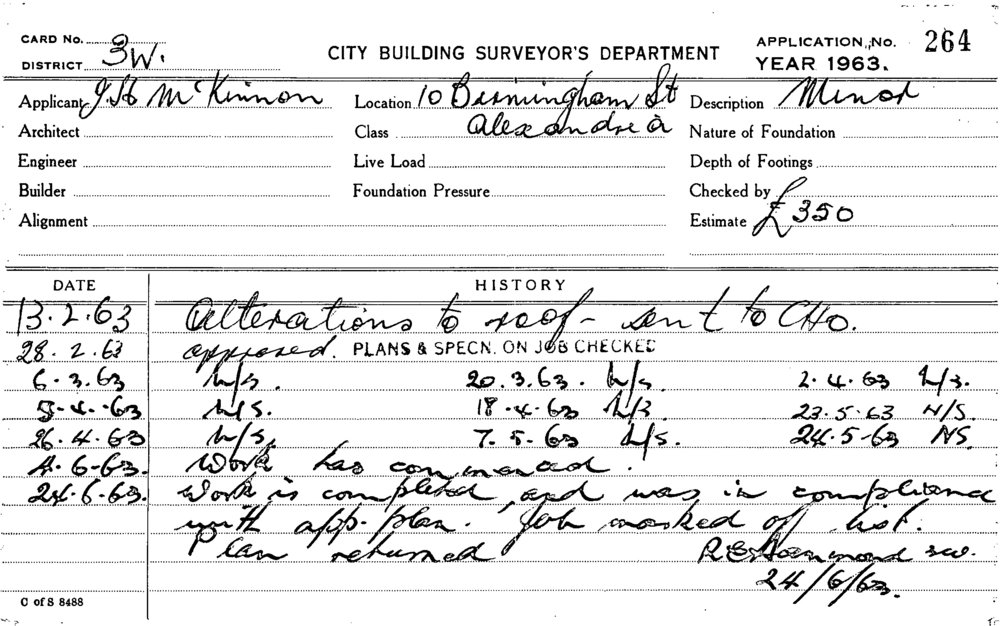 CARD No. 3W.
DISTRICT
CITY BUILDING SURVEYOR'S DEPARTMENT
APPLICATION No. 264
YEAR 1963.
Applicant J H McKinnon Location 10 Birmingham St Description Minor
Architect Class Alexandria Nature of Foundation
Engineer Live Load Depth of Footings
Builder Foundation Pressure Checked by
Alignment Estimate £350
DATE HISTORY
13.2.63 Alterations to roof - sent to CHO.
28.2.63 approved. PLANS & SPECN. ON JOB CHECKED
6.3.63 N/S. 20.3.63. N/S. 2.4.63 N/S.
5.4.63 N/S. 18.4.63 N/S 23.5.63 N/S.
26.4.63 N/S. 7.5.63 N/S. 24.5.63 NS.
4.6.63. Work has commenced.
24.6.63. Work is completed and was in compliance
with app. plan. Job marked off list.
Plan returned R E Hammond
24/6/63.
C of S 8488